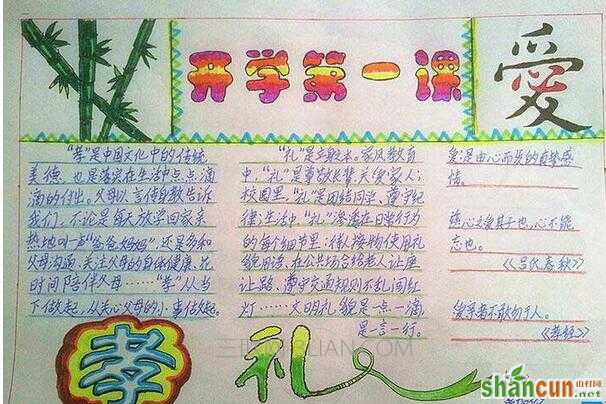 开学第一课
爱
"孝"是中国文化中的传统
美德，也是落实在生活中点点滴
滴的付出。父母以言传身教告诉
我们，不论是每天放学回家亲
热地叫一声"爸爸妈妈"，还是多和
父母沟通，关注父母的身体健康，花
时间陪伴父母……"孝"从当
下做起，从关心父母的小事做起。
孝
"礼"是立身之本。家风教育
中，"礼"是尊敬长辈关爱家人；
校园里，"礼"是团结同学，遵守纪
律；生活中，"礼"渗透在日常行为
的每个细节里：待人接物使用礼
貌用语，在公共场合给老人让座
让路，遵守交通规则不乱闯红
灯……文明礼貌是一点一滴，
是一言一行。
礼
爱是由心而发的真挚感
情。
慈心爱其子也，心不能
忘也。
《吕氏春秋》
爱亲者不敢勿于人。
《孝经》
shancun.net
山村网